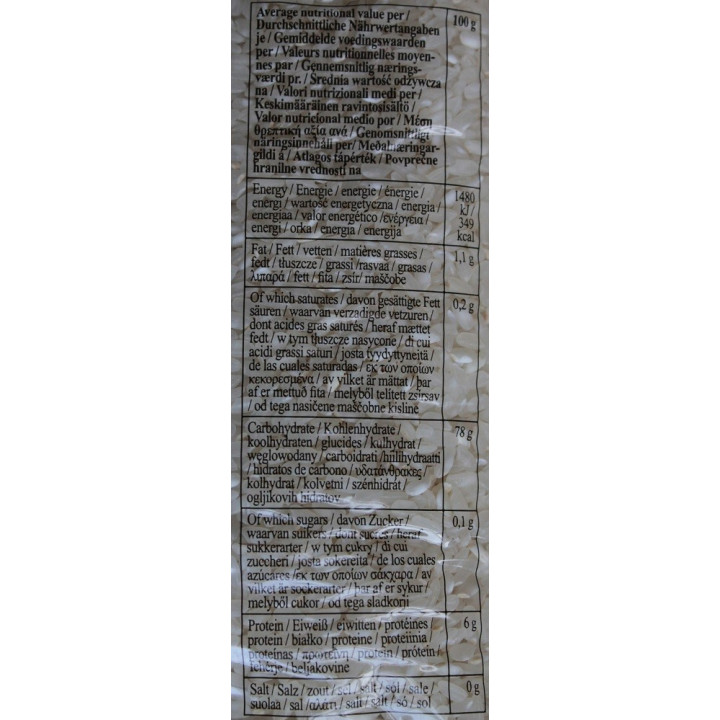 Average nutritional value per / 100 g
Durchschnittliche Nährwertangaben
je / Gemiddelde voedingswaarden
per / Valeurs nutritionnelles moyen-
nes par / Gennemsnitlig nærings-
værdi pr. / Średnia wartość odżywcza
na / Valori nutrizionali medi per /
Keskimääräinen ravintosisältö /
Valor nutricional medio por / Μέση
θρεπτική αξία ανά / Genomsnittligt
näringsinnehåll per / Meðalnæringar-
gildi á / Átlagos tápérték / Povprečne
hranilne vrednosti na
Energy / Energie / energie / énergie / 1480
energi / wartość energetyczna / energia / kJ /
energiaa / valor energético /ενέργεια / 349
energi / orka / energia / energija kcal
Fat / Fett / vetten / matières grasses / 1,1 g
fedt / tłuszcze / grassi /rasvaa / grasas /
λιπαρά / fett / fita / zsír/ maščobe
Of which saturates / davon gesättigte Fett 0,2 g
säuren / waarvan verzadigde vetzuren /
dont acides gras saturés /heraf mættet
fedt / w tym tłuszcze nasycone / di cui
acidi grassi saturi / josta tyydyttyneitä /
de las cuales saturadas / εκ των οποίων
κεκορεσμένα / av vilket är mättat / þar
af er mettuð fita / melyből telített zsírsav
/ od tega nasičene maščobne kisline
Carbohydrate / Kohlenhydrate / 78 g
koolhydraten / glucides / kulhydrat /
węglowodany / carboidrati /hiilihydraatti
/ hidratos de carbono / υδατάνθρακες /
kolhydrat / kolvetni / szénhidrát /
ogljikovih hidratov
Of which sugars / davon Zucker / 0,1 g
waarvan suikers / dont sucres / heraf
sukkerarter / w tym cukry / di cui
zuccheri / josta sokereita / de los cuales
azúcares /εκ των οποίων σάκχαρα / av
vilket är sockerarter / þar af er sykur /
melyből cukor / od tega sladkorji
Protein / Eiweiß / eiwitten / protéines / 6 g
protein / białko / proteine / proteiinia
proteínas / πρωτεΐνη / protein / prótein /
fehérje / beljakovine
Salt / Salz / zout / sel / salt / sól / sale / 0 g
suolaa / sal /αλάτι / salt / salt / só / sol